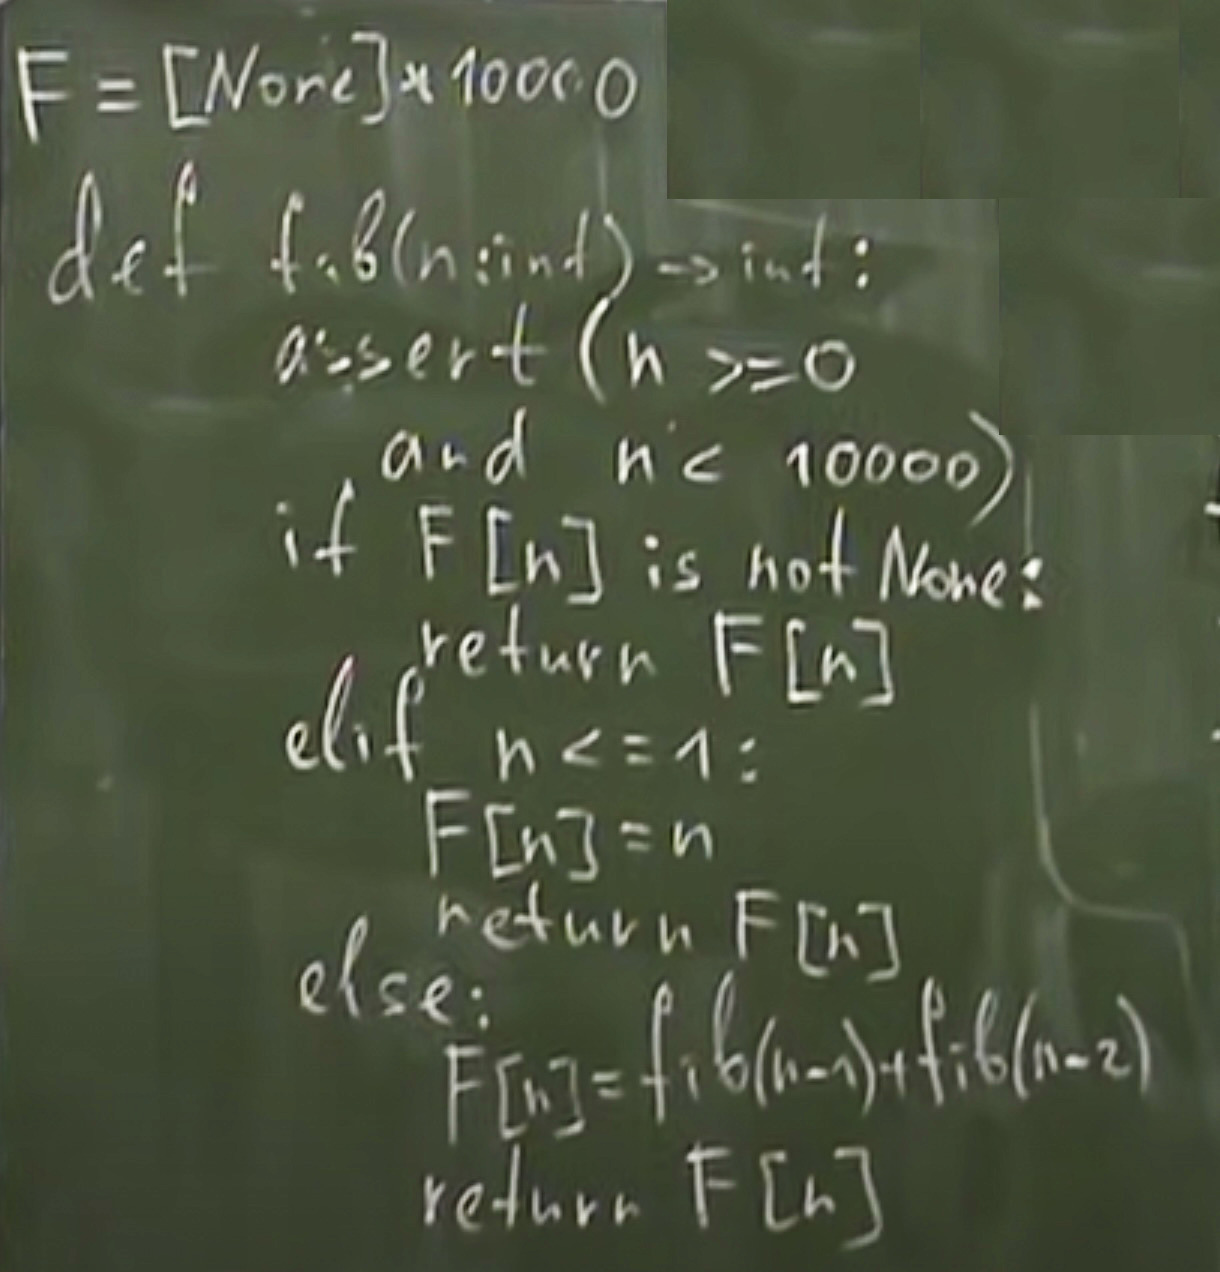 F = [None]*10000
def fib(n:int)->int:
assert (n >=0
and n < 10000)
if F[n] is not None:
return F[n]
elif n <= 1:
F[n] = n
return F[n]
else:
F[n] = fib(n-1)+fib(n-2)
return F[n]